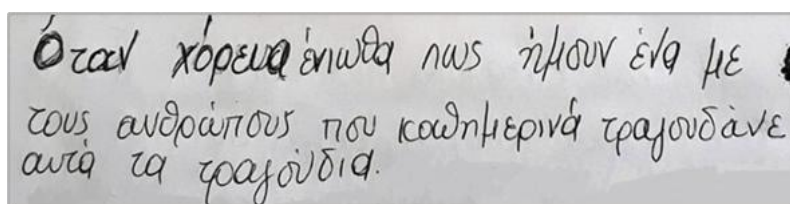 Όταν χόρευα ένιωθα πως ήμουν ένα με
τους ανθρώπους που καθημερινά τραγουδάνε
αυτά τα τραγούδια.